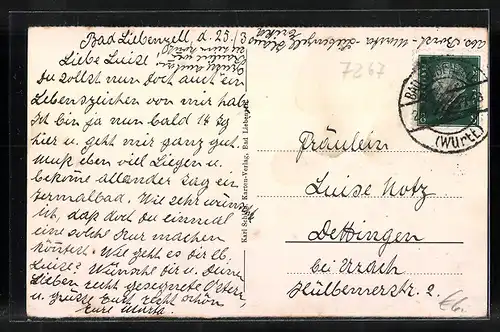 Bad Liebenzell, d. 25./3
Liebe Luise!
Du sollst nun doch auch ein
Lebenszeichen von mir haben
Ist bin ja nun bald 14 Tg
hier u. geht mir ganz gut.
Muß eben viel Liegen u.
bekome allander Tag ein
Termalbad. Wie sehr wünsch
ich, daß doch Du einmal
eine solche Kur machen
könntest. Wie geht es Dir lb.
Luise? Wünsche Dir u. Deinen
Lieben recht gesegnete Ostern,
u. grüße Euch recht schön
Eure Marta.
abs. Marta Liebenzell
7267
Karten-Verlag, Bad Liebenzell
(Württ)
Fräulein
Luise Notz
Dettingen
bei Urach
Hülbenerstr. 2.